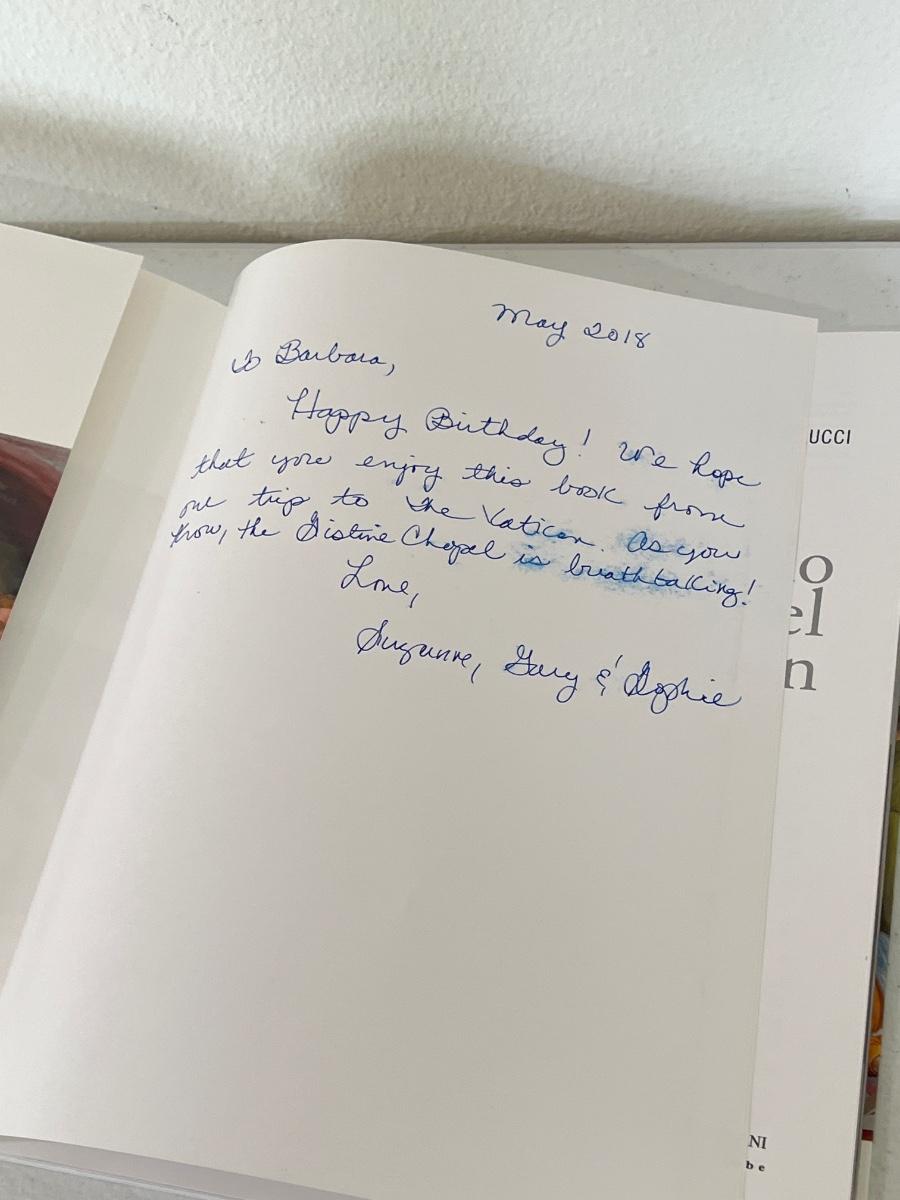 May 2018
to Barbara,
Happy Birthday! We hope
that you enjoy this book from
our trip to the Vatican. As you
know, the Sistine Chapel is breathtaking!
Love,
Suzanne, Gary & Sophie
UCCI
o
el
n
NI
be